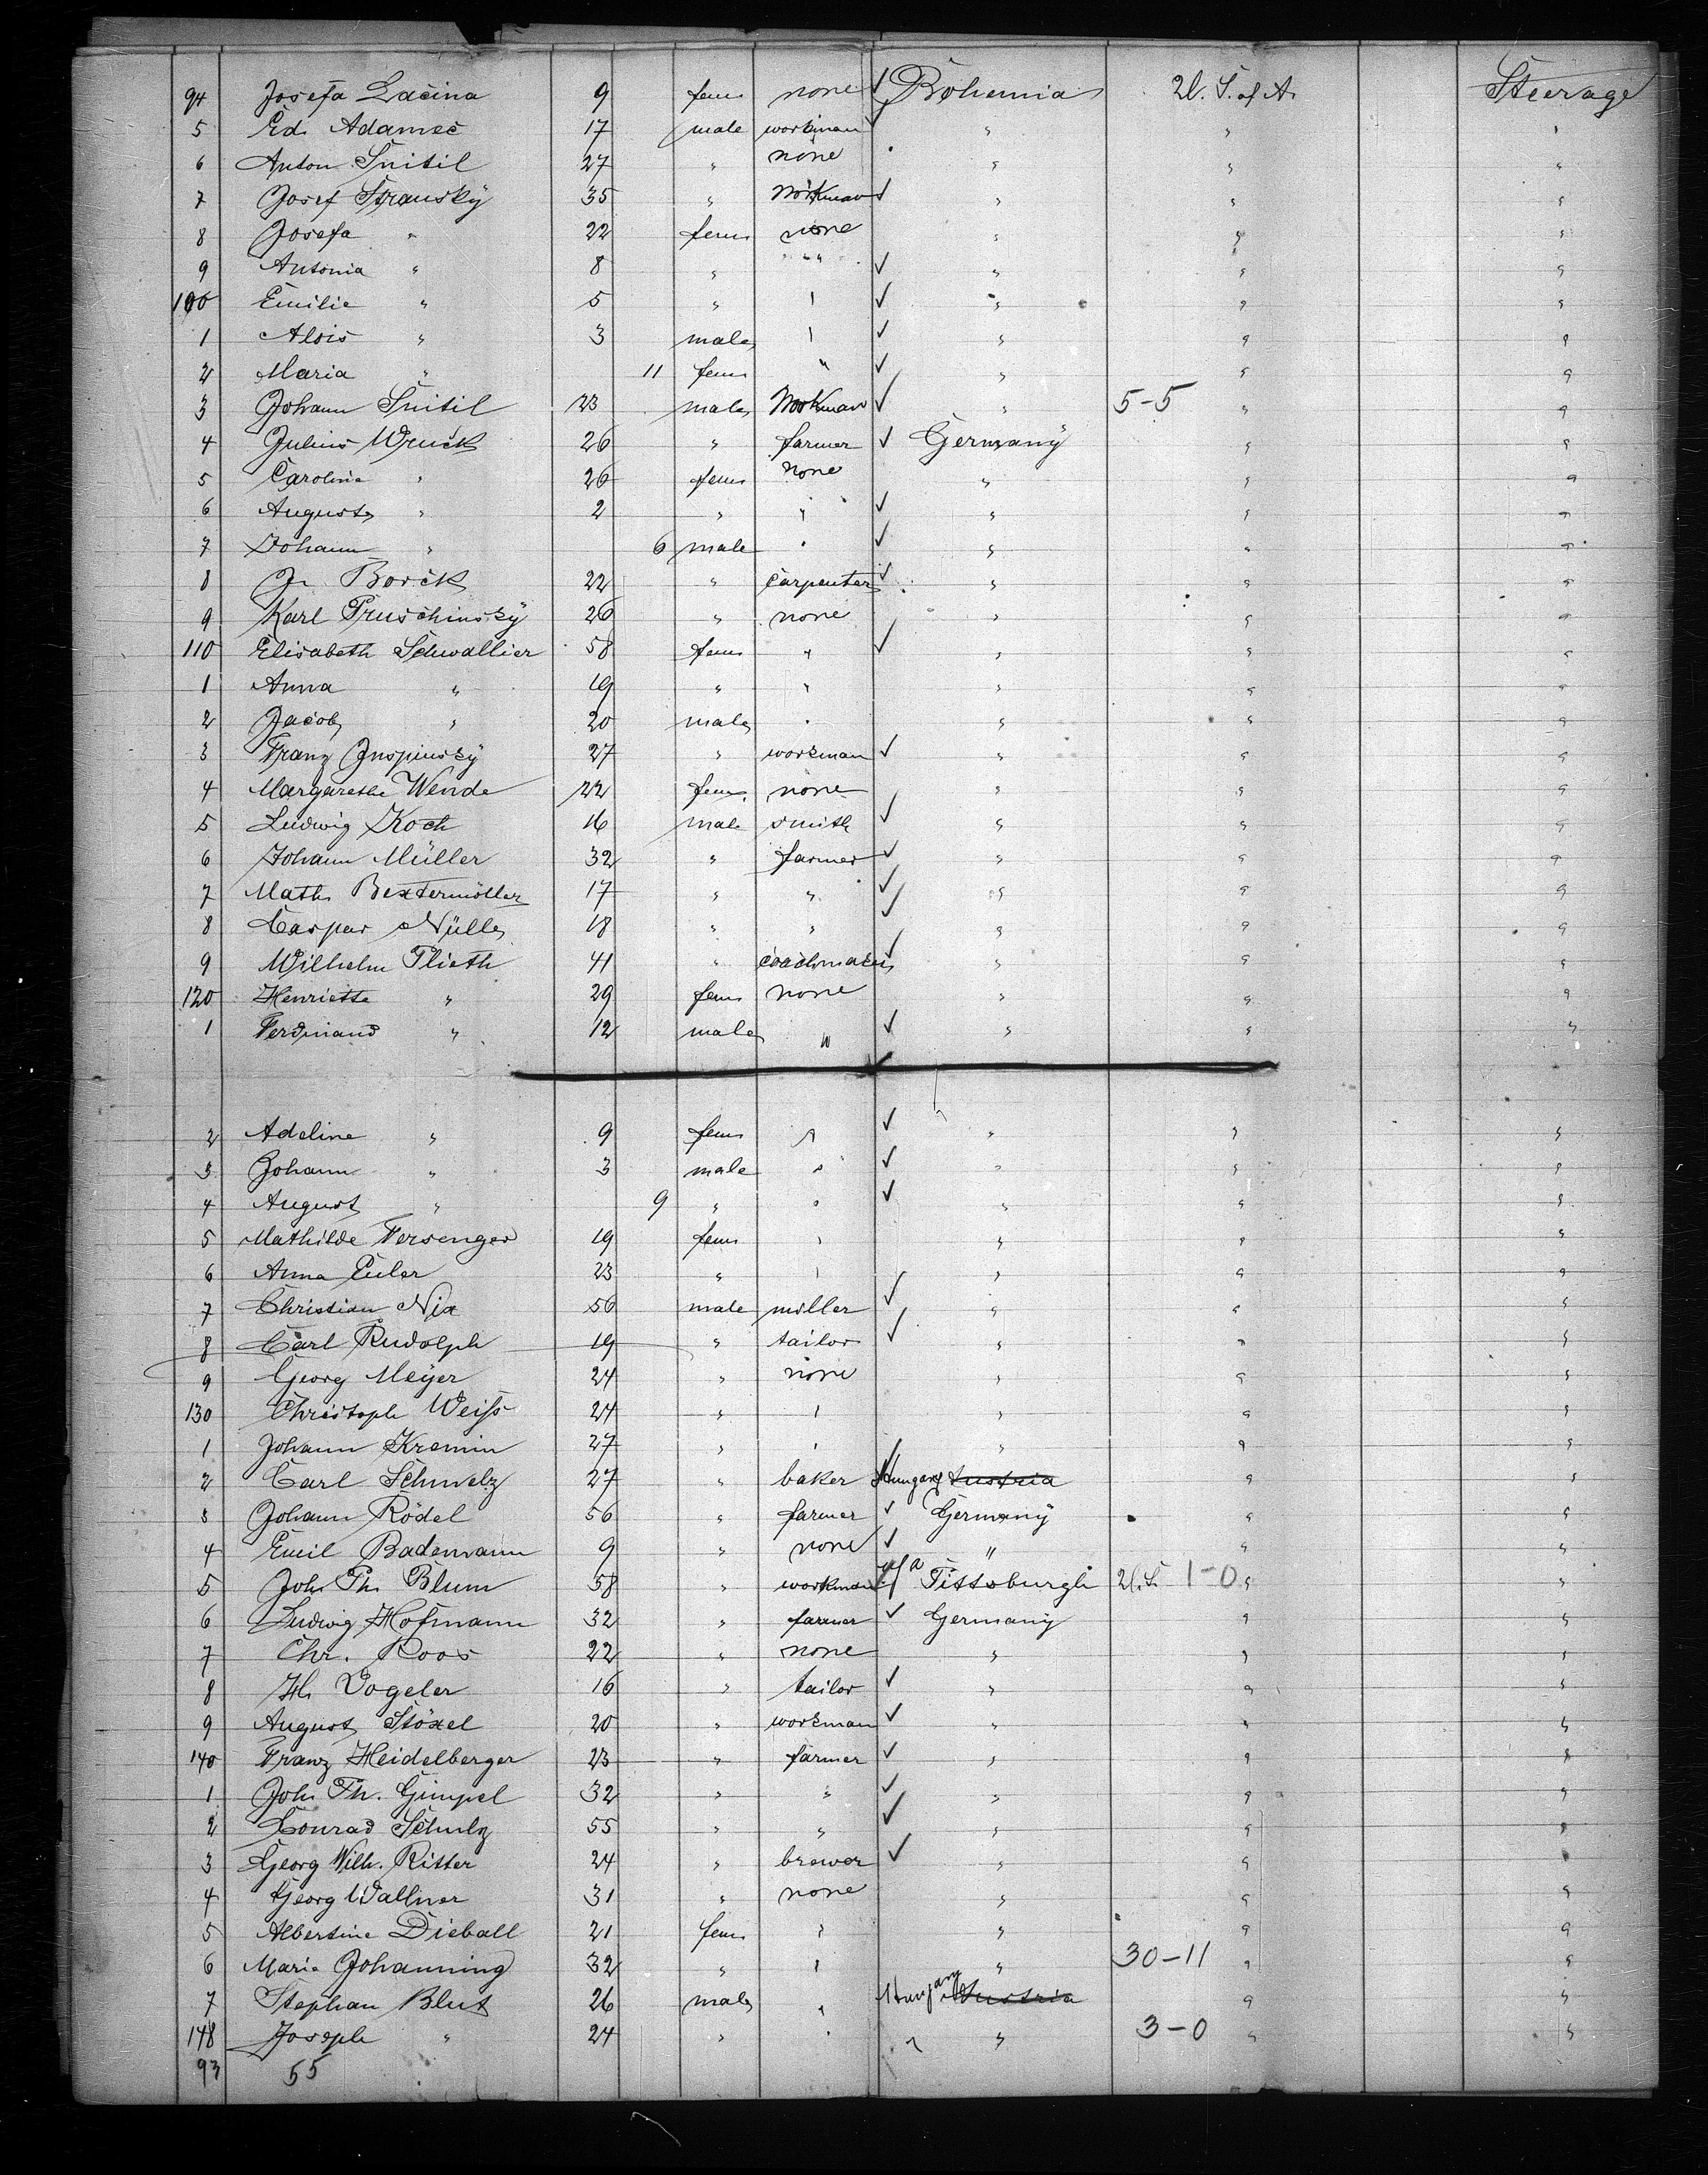 94 Josefa Lačina 9 fem none ✓ Bohemia U. S. of A. Steerage
5 Ed. Adamec 17 male workman ✓ " " "
6 Anton Snitil 27 " none " " "
7 Josef Stransky 35 " Workman ✓ " " "
8 Josefa " 22 fem none " " "
9 Antonia " 8 " " ✓ " " "
100 Emilie " 5 " " ✓ " " "
1 Alois " 3 male " ✓ " " "
2 Maria " 11 fem " ✓ " " "
3 Johann Snitil 23 male Workman ✓ " 5-5 " "
4 Julius Wruck 26 " farmer ✓ Germany " "
5 Caroline " 26 fem none " " "
6 Auguste " 2 " " ✓ " " "
7 Johann " 6 male " ✓ " " "
8 J. Borck 22 " carpenter ✓ " " "
9 Karl Pruschinsky 26 " none " " "
110 Elisabeth Schwallier 58 fem " ✓ " " "
1 Anna " 19 " " " " "
2 Jacob " 20 male " " " "
3 Franz Juspinsky 27 " workman ✓ " " "
4 Margarethe Wende 22 fem none " " "
5 Ludwig Koch 16 male smith ✓ " " "
6 Johann Müller 32 " farmer ✓ " " "
7 Math. Bextermöller 17 " " ✓ " " "
8 Caspar Nülle 18 " " ✓ " " "
9 Wilhelm Plieth 41 " coachmaker ✓ " " "
120 Henriette " 29 fem none " " "
1 Ferdinand " 12 male " ✓ " " "
2 Adeline " 9 fem " ✓ " " "
3 Johann " 3 male " ✓ " " "
4 August " 9 " " ✓ " " "
5 Mathilde Fersenger 19 fem " " " "
6 Anna Euler 23 " " " " "
7 Christian Nix 56 male miller ✓ " " "
8 Carl Rudolph 19 " tailor ✓ " " "
9 Georg Meyer 24 " none " " "
130 Christoph Weiſs 24 " " " " "
1 Johann Kremin 27 " " " " "
2 Carl Schmelz 27 " baker ✓ Hungary Austria " "
3 Johann Rödel 56 " farmer ✓ Germany " "
4 Emil Bademann 9 " none ✓ " " "
5 Joh. Ph. Blum 58 " workman Pittsburgh U. S. 1-0 " "
6 Ludwig Hofmann 32 " farmer ✓ Germany " "
7 Chr. Roos 22 " none " " "
8 H. Vogeler 16 " tailor ✓ " " "
9 August Stöxel 20 " workman ✓ " " "
140 Franz Heidelberger 23 " farmer ✓ " " "
1 Joh. Fh. Gimpel 32 " " ✓ " " "
2 Conrad Schulz 55 " " ✓ " " "
3 Georg Wilh. Ritter 24 " brewer ✓ " " "
4 Georg Wallner 31 " none " " "
5 Albertine Dieball 21 fem " " " "
6 Marie Johanning 32 " " " 30-11 " "
7 Stephan Blut 26 male " Hungary Austria " "
148 Joseph " 24 " " " " 3-0 " "
93 55